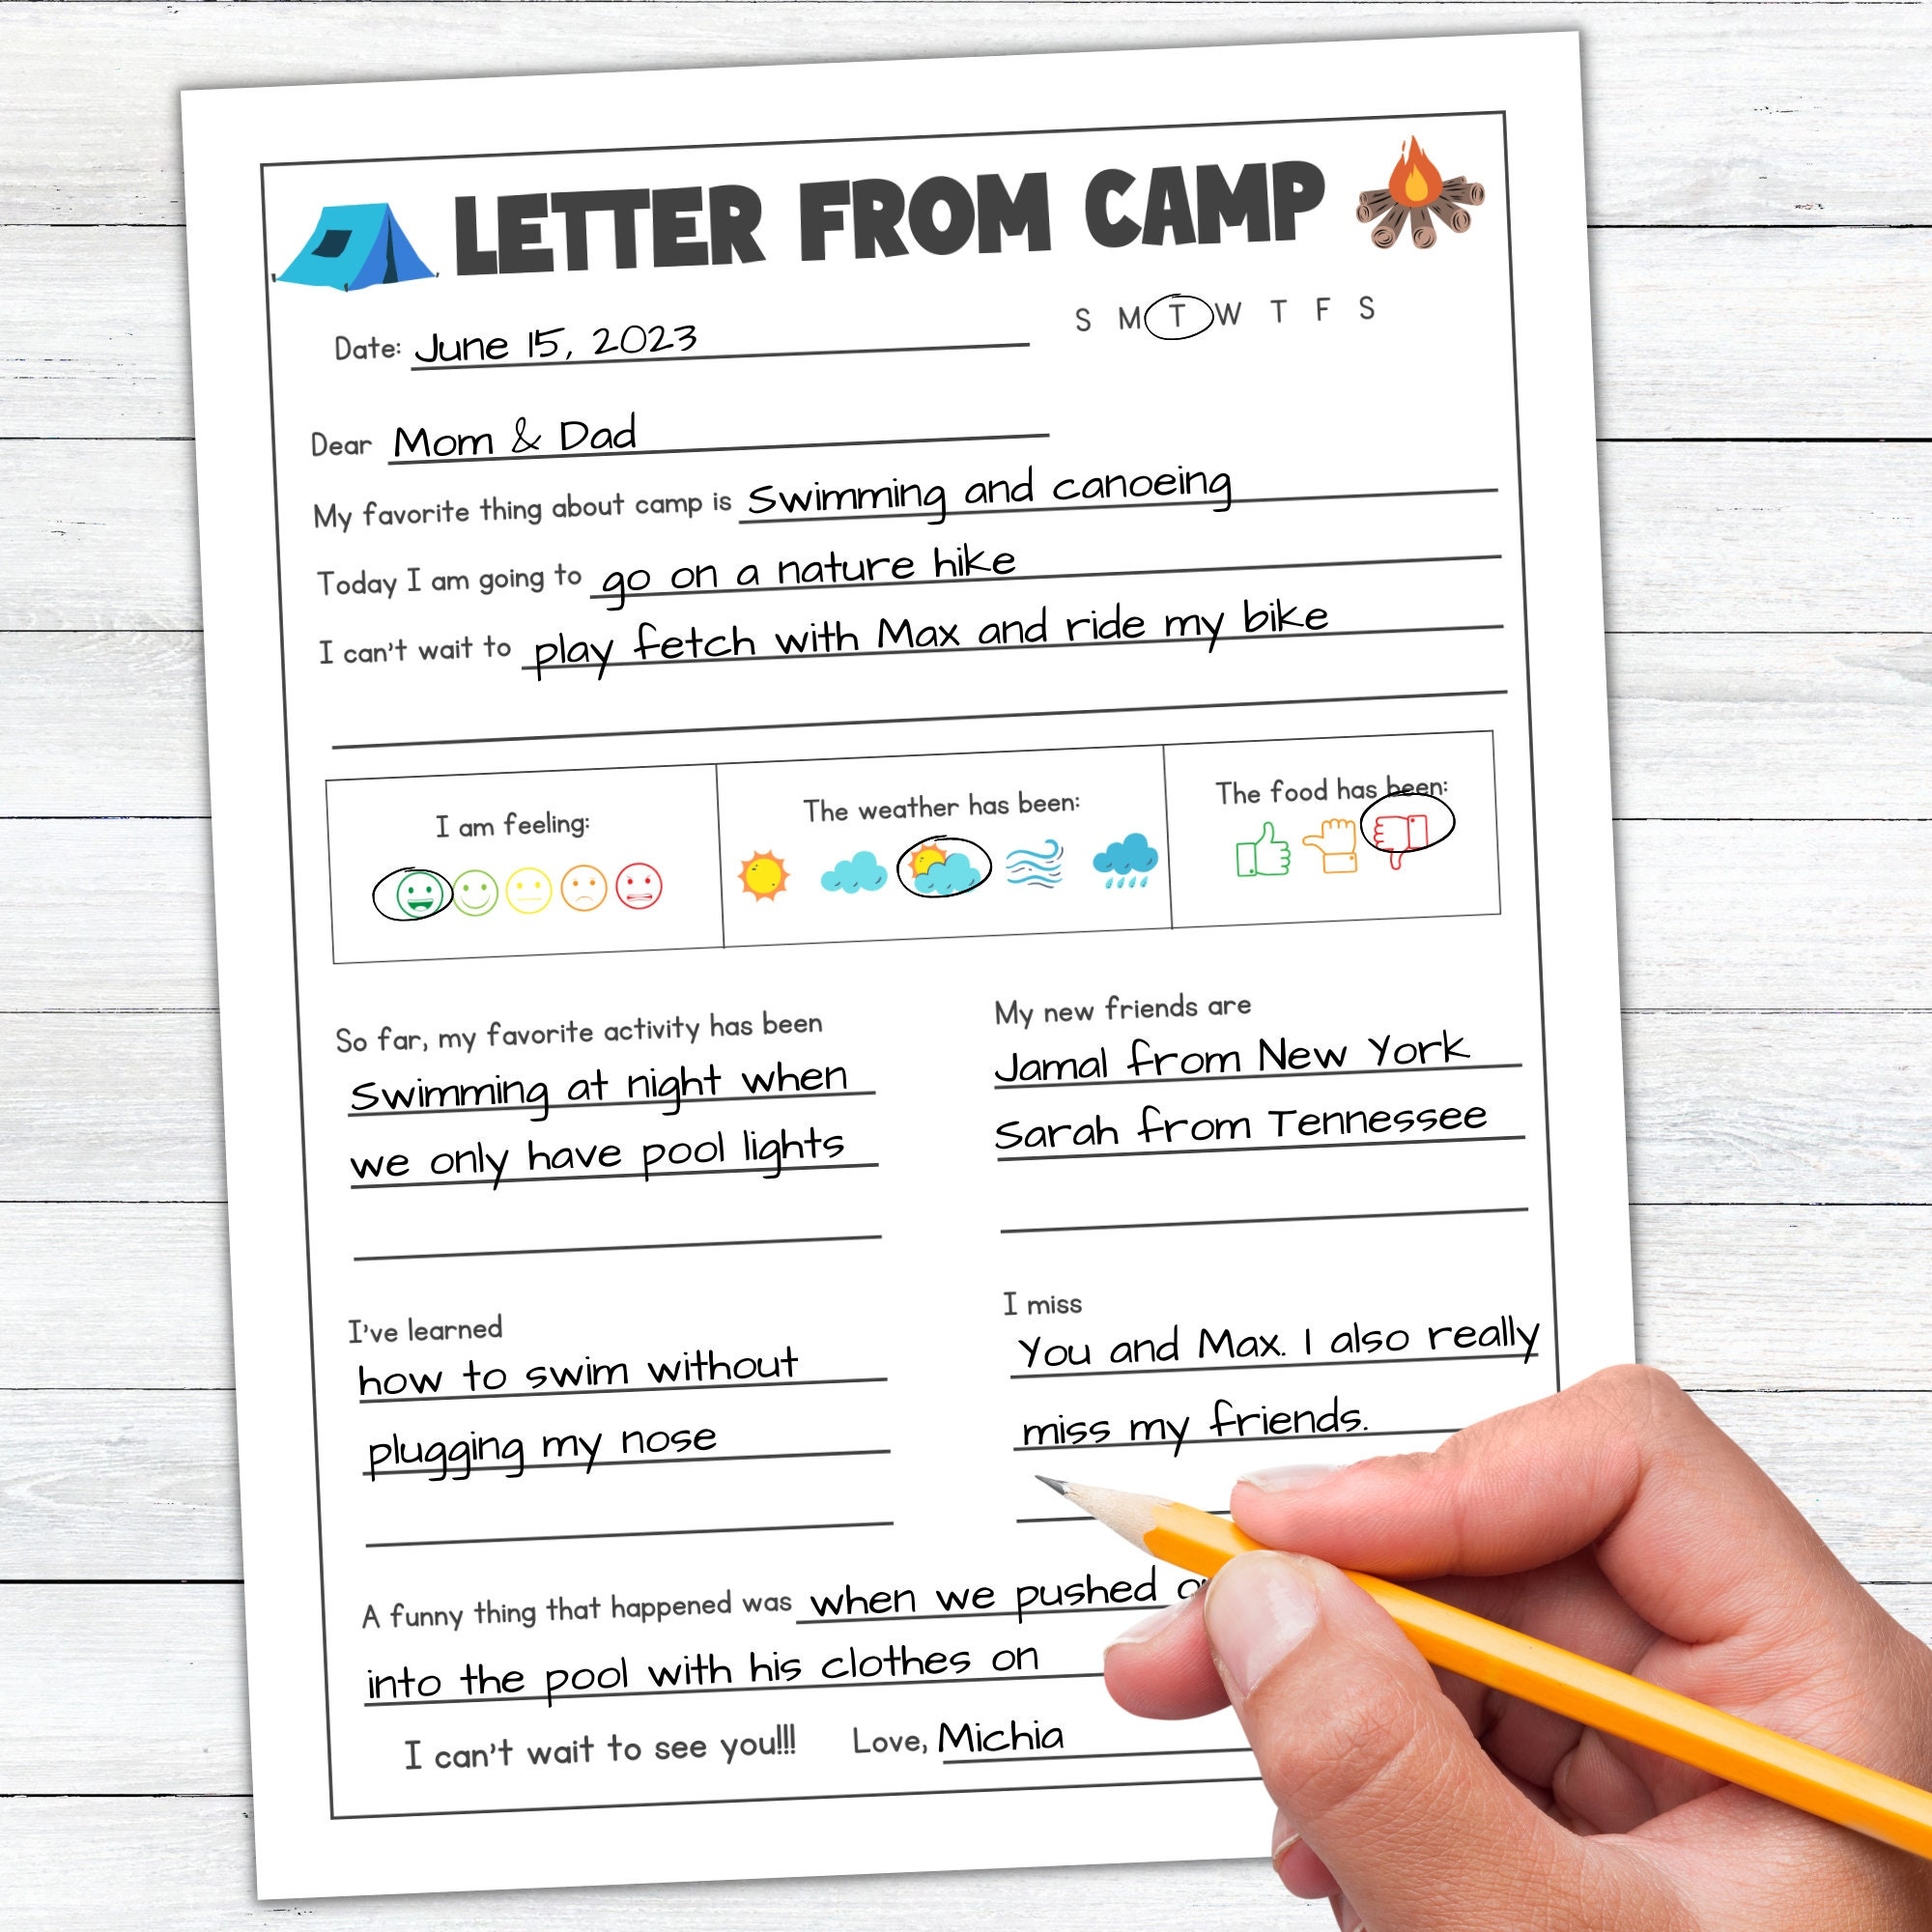 LETTER FROM CAMP
Date: June 15, 2023 S M T W T F S
Dear Mom & Dad
My favorite thing about camp is Swimming and canoeing
Today I am going to go on a nature hike
I can't wait to play fetch with Max and ride my bike
I am feeling: The weather has been: The food has been:
So far, my favorite activity has been
Swimming at night when
we only have pool lights
My new friends are
Jamal from New York
Sarah from Tennessee
I've learned
how to swim without
plugging my nose
I miss
You and Max. I also really
miss my friends.
A funny thing that happened was when we pushed
into the pool with his clothes on
I can't wait to see you!!! Love, Michia